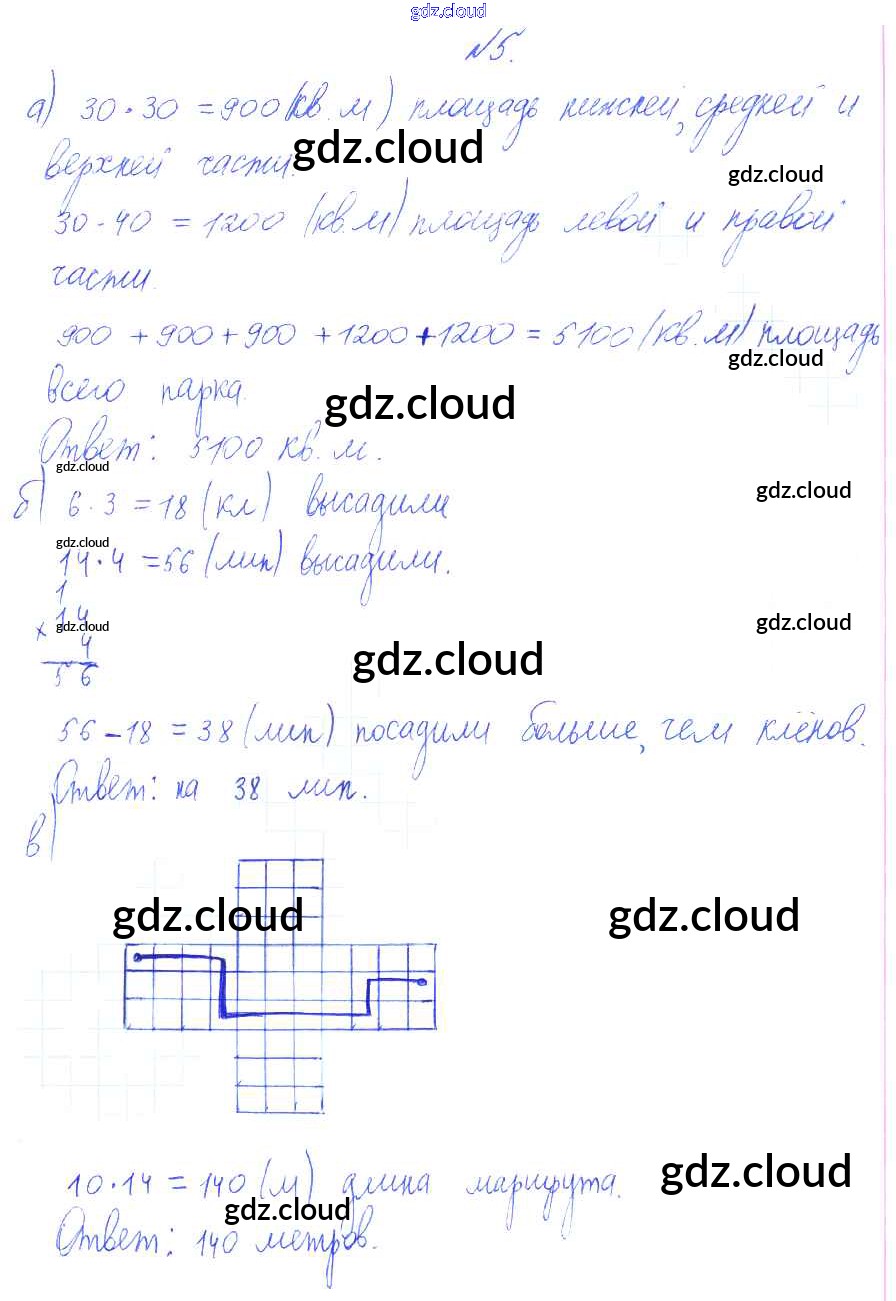 gdz.cloud
№5.
а) 30·30 = 900 (кв.м) площадь нижней, средней и
gdz.cloud
верхней части.
gdz.cloud
30·40 = 1200 (кв.м) площадь левой и правой
части.
900 + 900 + 900 + 1200 + 1200 = 5100 (кв.м) площадь
gdz.cloud
всего парка.
gdz.cloud
Ответ: 5100 кв.м.
gdz.cloud
б) 6·3 = 18 (кл) высадили
gdz.cloud
gdz.cloud
14·4 = 56 (лип) высадили.
1
× 14
gdz.cloud
gdz.cloud
4
gdz.cloud
56
56 - 18 = 38 (лип) посадили больше, чем клёнов.
Ответ: на 38 лип.
в)
gdz.cloud
gdz.cloud
gdz.cloud
10·14 = 140 (м) длина маршрута.
gdz.cloud
Ответ: 140 метров.